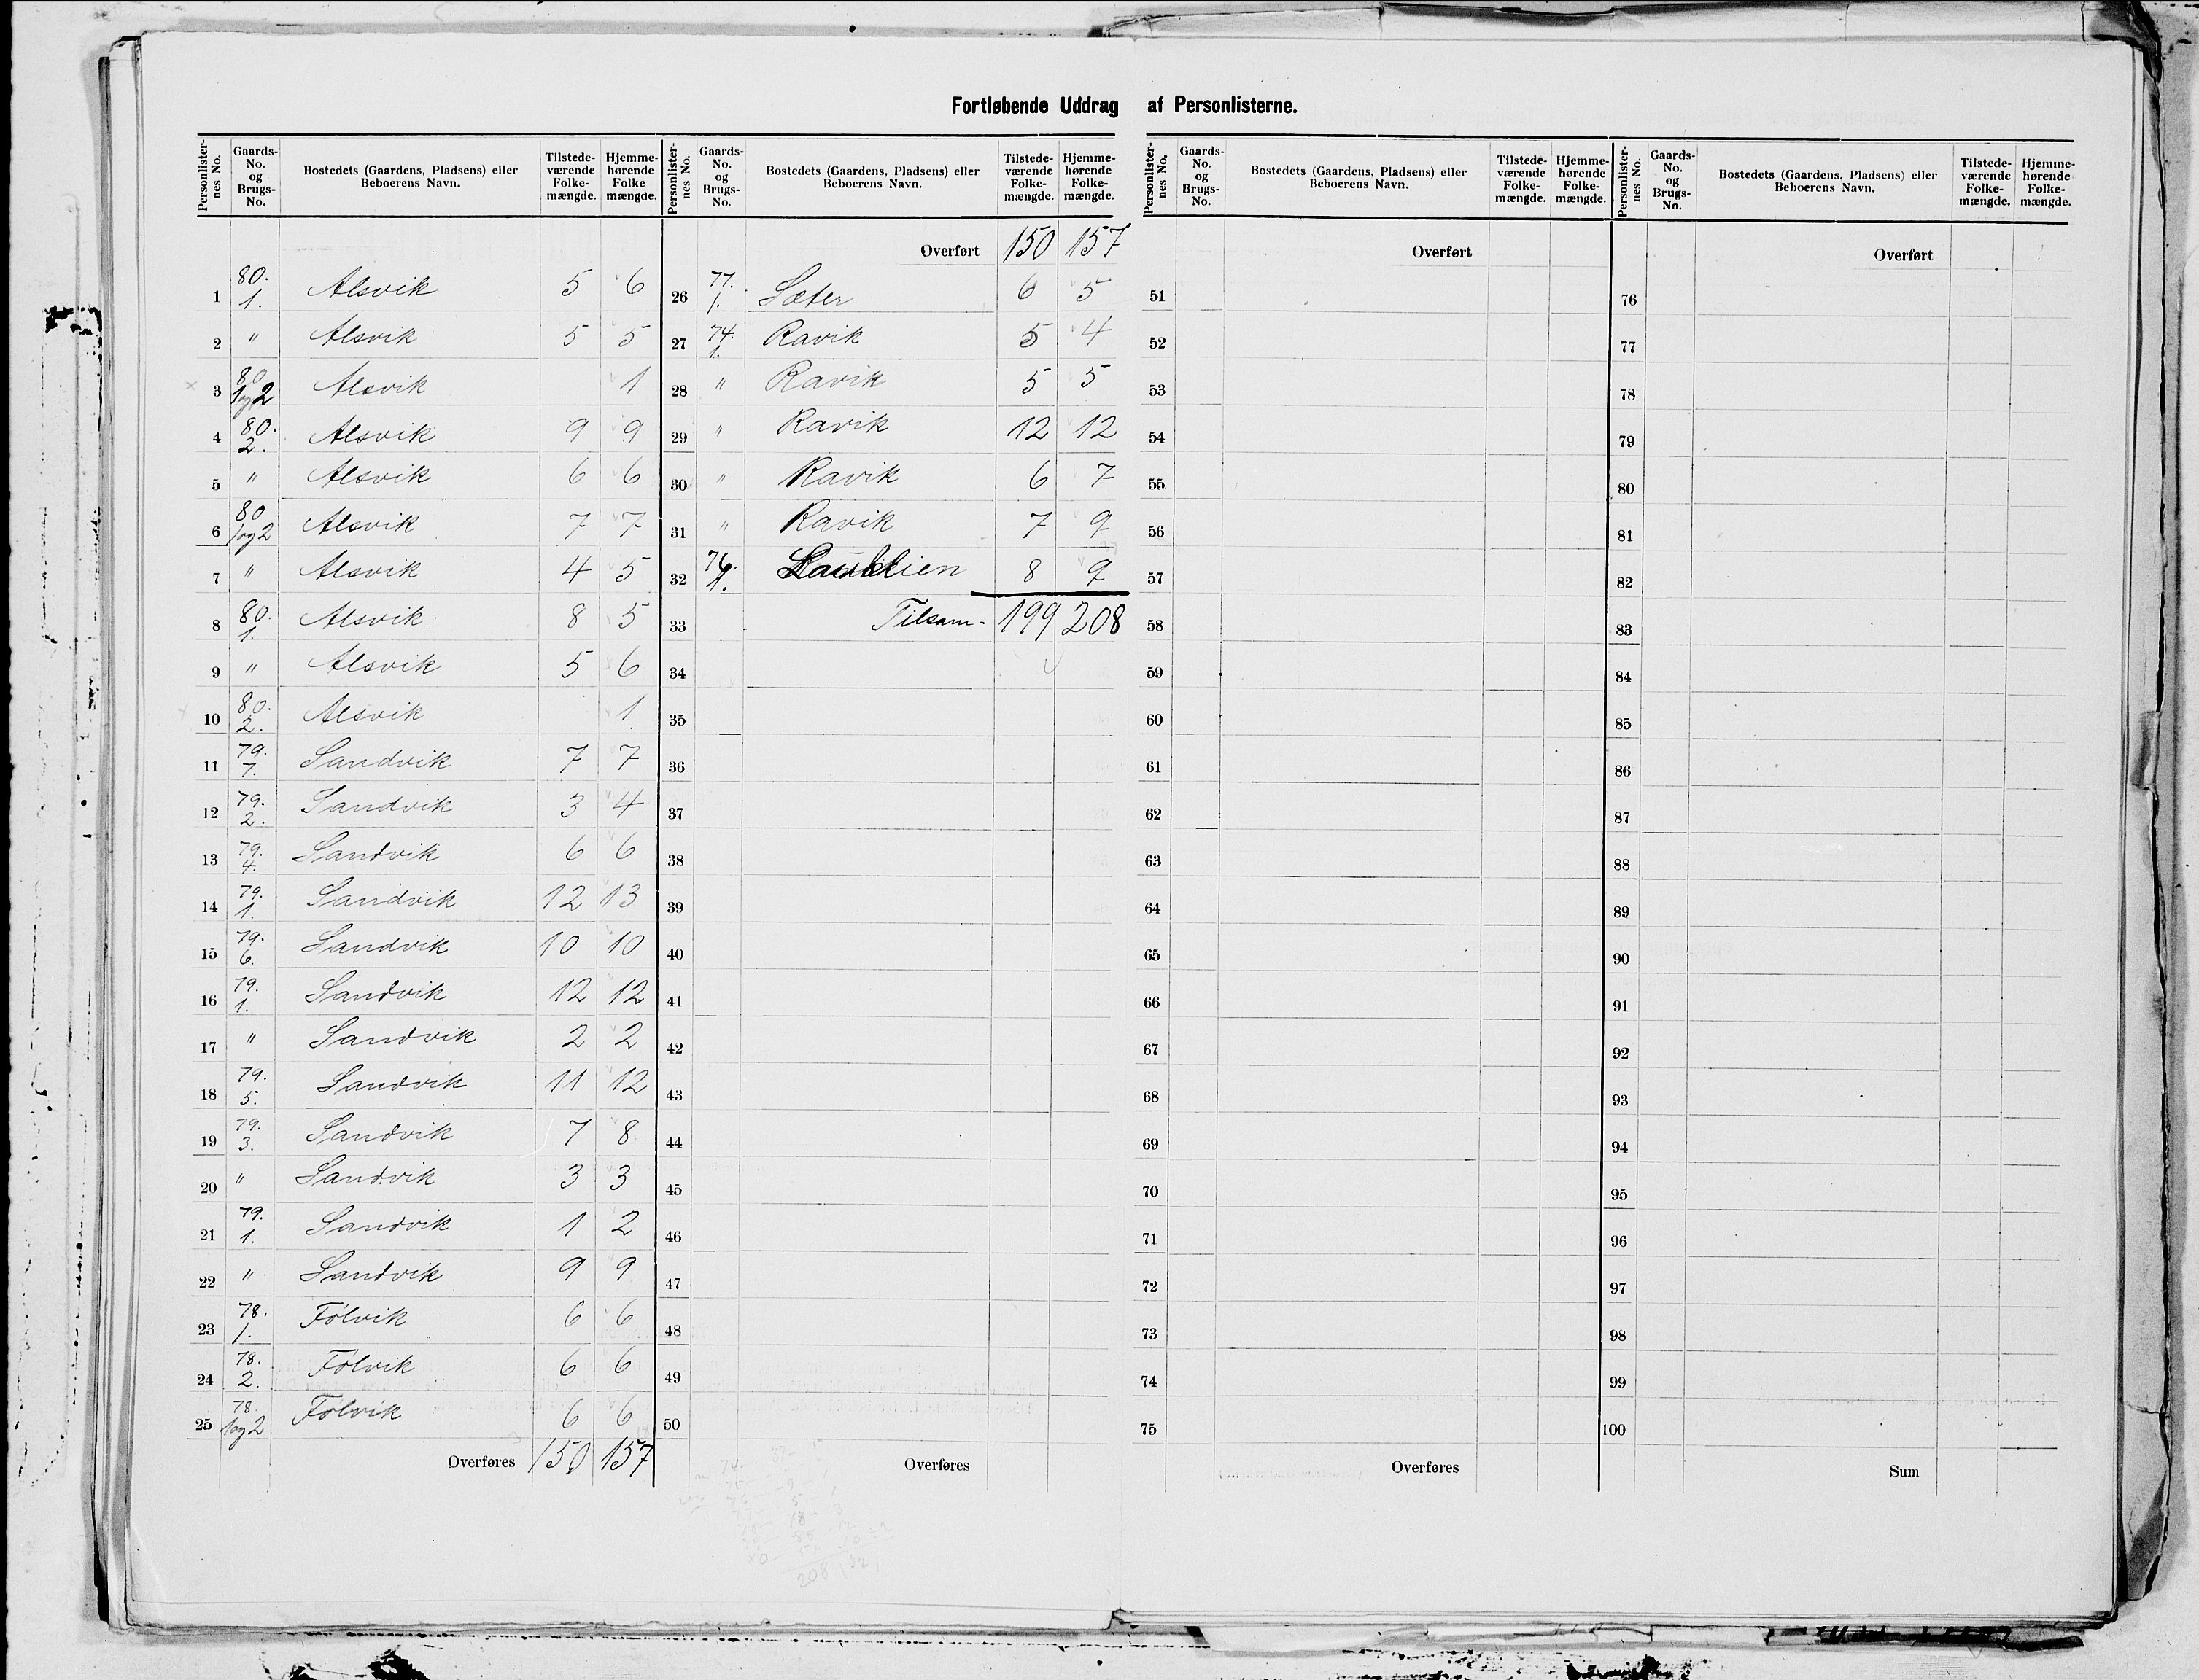 Fortløbende Uddrag af Personlisterne.
Personlister-nes No. Gaards-No. og Brugs-No. Bostedets (Gaardens, Pladsens) eller Beboerens Navn. Tilstede-værende Folke-mængde. Hjemme-hørende Folke mængde.
1 80. 1. Alsvik 5 6
2 " Alsvik 5 5
3 80 1og2 Alsvik 1
4 80. 2. Alsvik 9 9
5 " Alsvik 6 6
6 80 1og2 Alsvik 7 7
7 " Alsvik 4 5
8 80. 1. Alsvik 8 5
9 " Alsvik 5 6
10 80. 2. Alsvik 1
11 79. 7. Sandvik 7 7
12 79. 2. Sandvik 3 4
13 79. 4. Sandvik 6 6
14 79. 1. Sandvik 12 13
15 79. 6. Sandvik 10 10
16 79. 1. Sandvik 12 12
17 " Sandvik 2 2
18 79. 5. Sandvik 11 12
19 79. 3. Sandvik 7 8
20 " Sandvik 3 3
21 79. 1. Sandvik 1 2
22 " Sandvik 9 9
23 78. 1. Følvik 6 6
24 78. 2. Følvik 6 6
25 78. 1og2 Følvik 6 6
Overføres 150 157
Personlister-nes No. Gaards-No. og Brugs-No. Bostedets (Gaardens, Pladsens) eller Beboerens Navn. Tilstede-værende Folke-mængde. Hjemme-hørende Folke-mængde.
Overført 150 157
26 77. 1. Sæter 6 5
27 74. 1. Ravik 5 4
28 " Ravik 5 5
29 " Ravik 12 12
30 " Ravik 6 7
31 " Ravik 7 9
32 76. 1. 8 9
33 Tilsam- 199 208
34
35
36
37
38
39
40
41
42
43
44
45
46
47
48
49
50
Overføres
208
Personlister-nes No. Gaards-No. og Brugs-No. Bostedets (Gaardens, Pladsens) eller Beboerens Navn. Tilstede-værende Folke-mængde. Hjemme-hørende Folke-mængde.
Overført
51
52
53
54
55
56
57
58
59
60
61
62
63
64
65
66
67
68
69
70
71
72
73
74
75
Overføres
Personlister-nes No. Gaards-No. og Brugs-No. Bostedets (Gaardens, Pladsens) eller Beboerens Navn. Tilstede-værende Folke-mængde. Hjemme-hørende Folke-mængde.
Overført
76
77
78
79
80
81
82
83
84
85
86
87
88
89
90
91
92
93
94
95
96
97
98
99
100
Sum